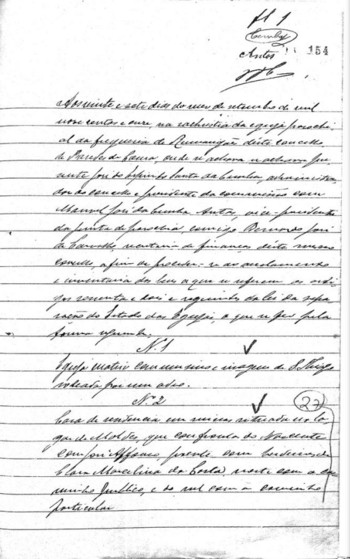 fl 1
Antos
154
Aos vinte e sete dias do mes de setembro de mil
nove centos e onze, na sachristia da egreja parochi-
al da freguezia de deste concelho
de onde se achavam pre-
sente José do Espirito Santo da Cunha, administra-
dor do concelho e presidente da commissão com
Manuel José da Cunha Antos, vice-presidente
da junta de parochia comigo Bernardo José
de Carvalho, secretario de finanças deste mesmo
concelho, a fim de proceder-se ao arrolamento
e inventario dos bens a que se referem os arti-
gos sessenta e dois e seguintes da lei da sepa-
ração do Estado das Egrejas, o que se fez pela
fórma seguinte:
N. 1
Egreja matriz com imagem de S. Thiago
por um adro.
N. 2
27
Casa de residencia em ruinas situada no lo-
gar de que confronta do Nascente
com José Affonso, poente com herdeiros de
Clara Marcelina da Costa, norte com o ca-
minho publico, e do sul com o caminho
particular